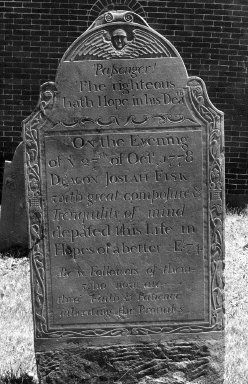 Passenger!
The righteous
hath Hope in his Dea
On the Evening
of ye 27th of Octr 1778
DEACON JOSIAH FISK
with great composure &
Tranquility of mind
depated this Life in
Hopes of a better Æ 74
Be ye Followers of them
who now are
thro' Faith & Patience
inheriting the Promises